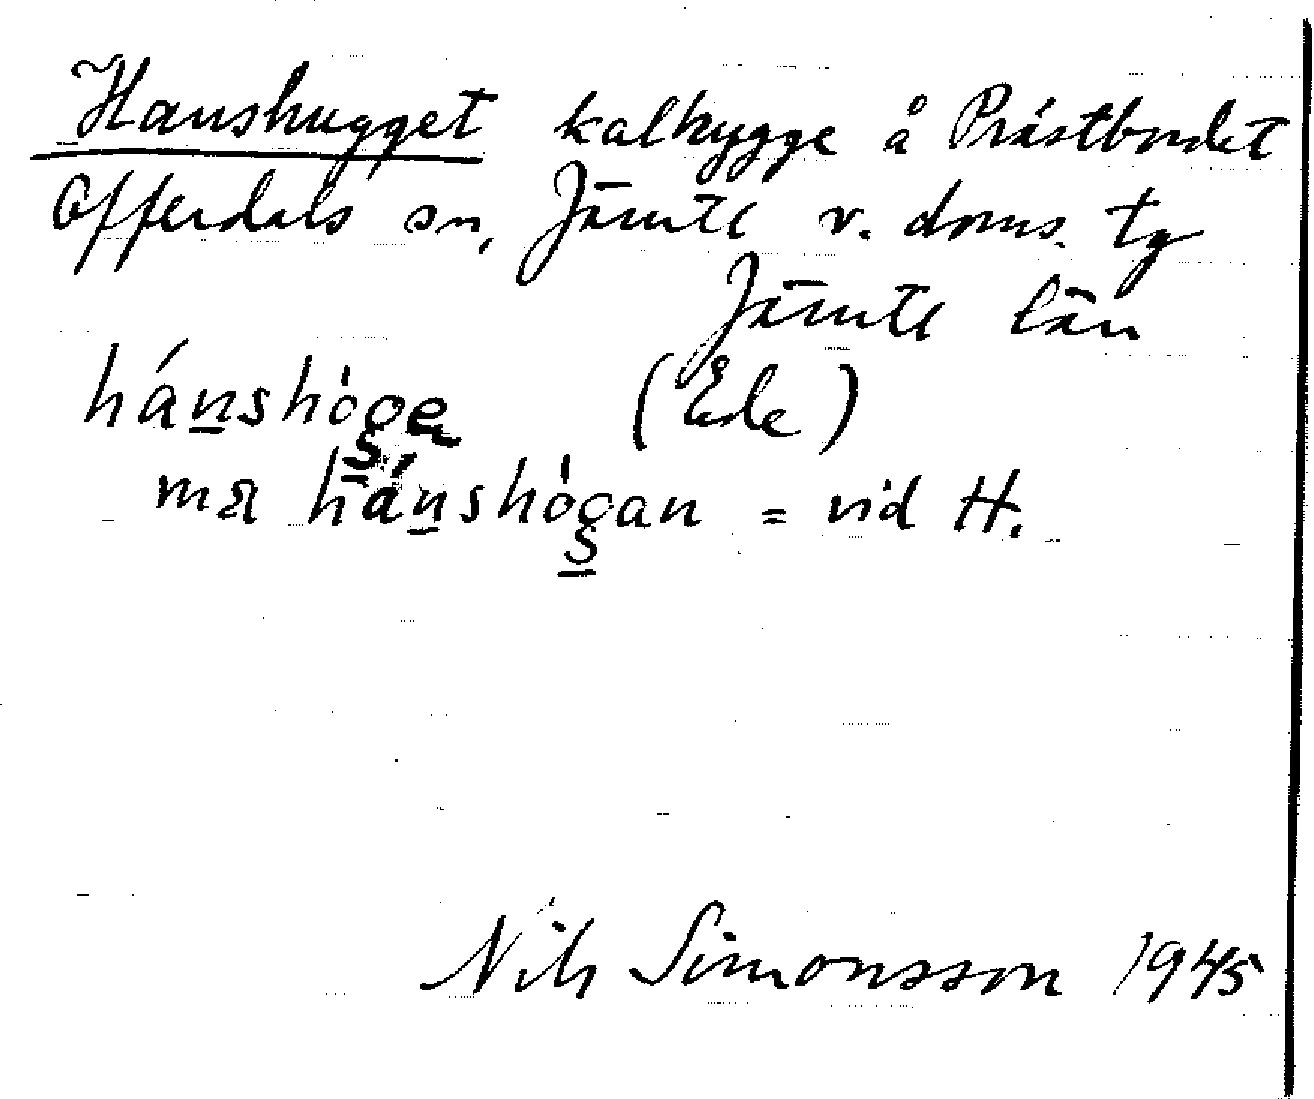 Hanshugget kalhygge å Prästbordet
Offerdals sn, Jämtl v. doms. tg
Jämtl län
hánshòge (Ede)
ma hánshògan = vid H.
Nils Simonsson 1945